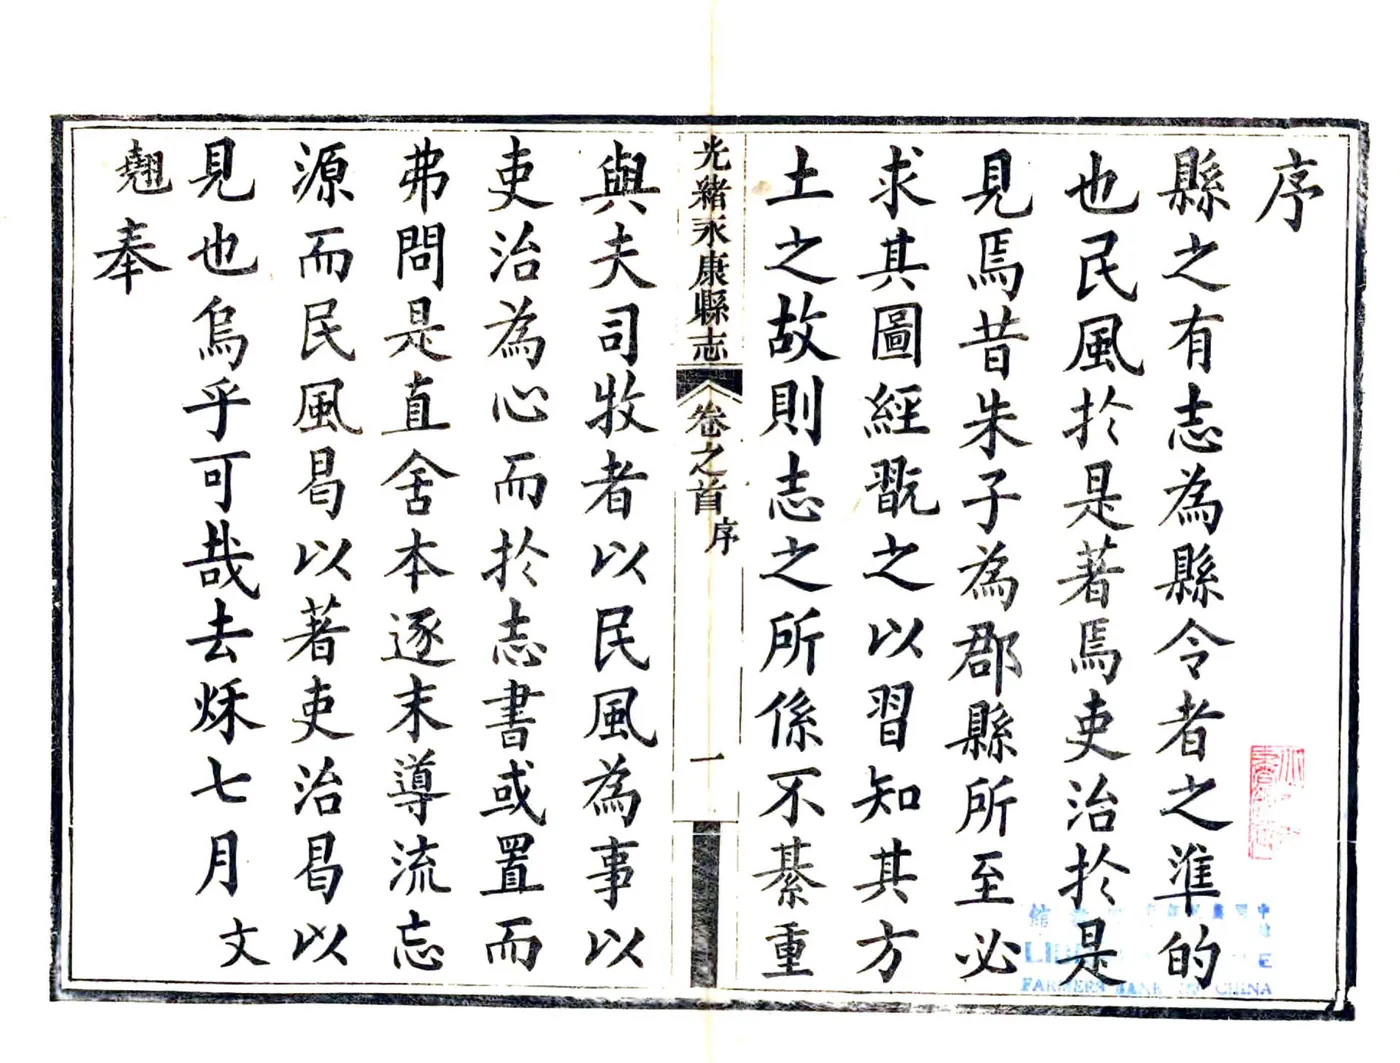 序
縣之有志為縣令者之準的
也民風於是著焉吏治於是
見焉昔朱子為郡縣所至必
求其圖經翫之以習知其方
土之故則志之所係不綦重
光緒永康縣志 卷之首 序 一
與夫司牧者以民風為事以
吏治為心而於志書或置而
弗問是直舍本逐末導流忘
源而民風曷以著吏治曷以
見也烏乎可哉去秌七月文
翹奉
館
LIB
FARMERS BANK OF CHINA